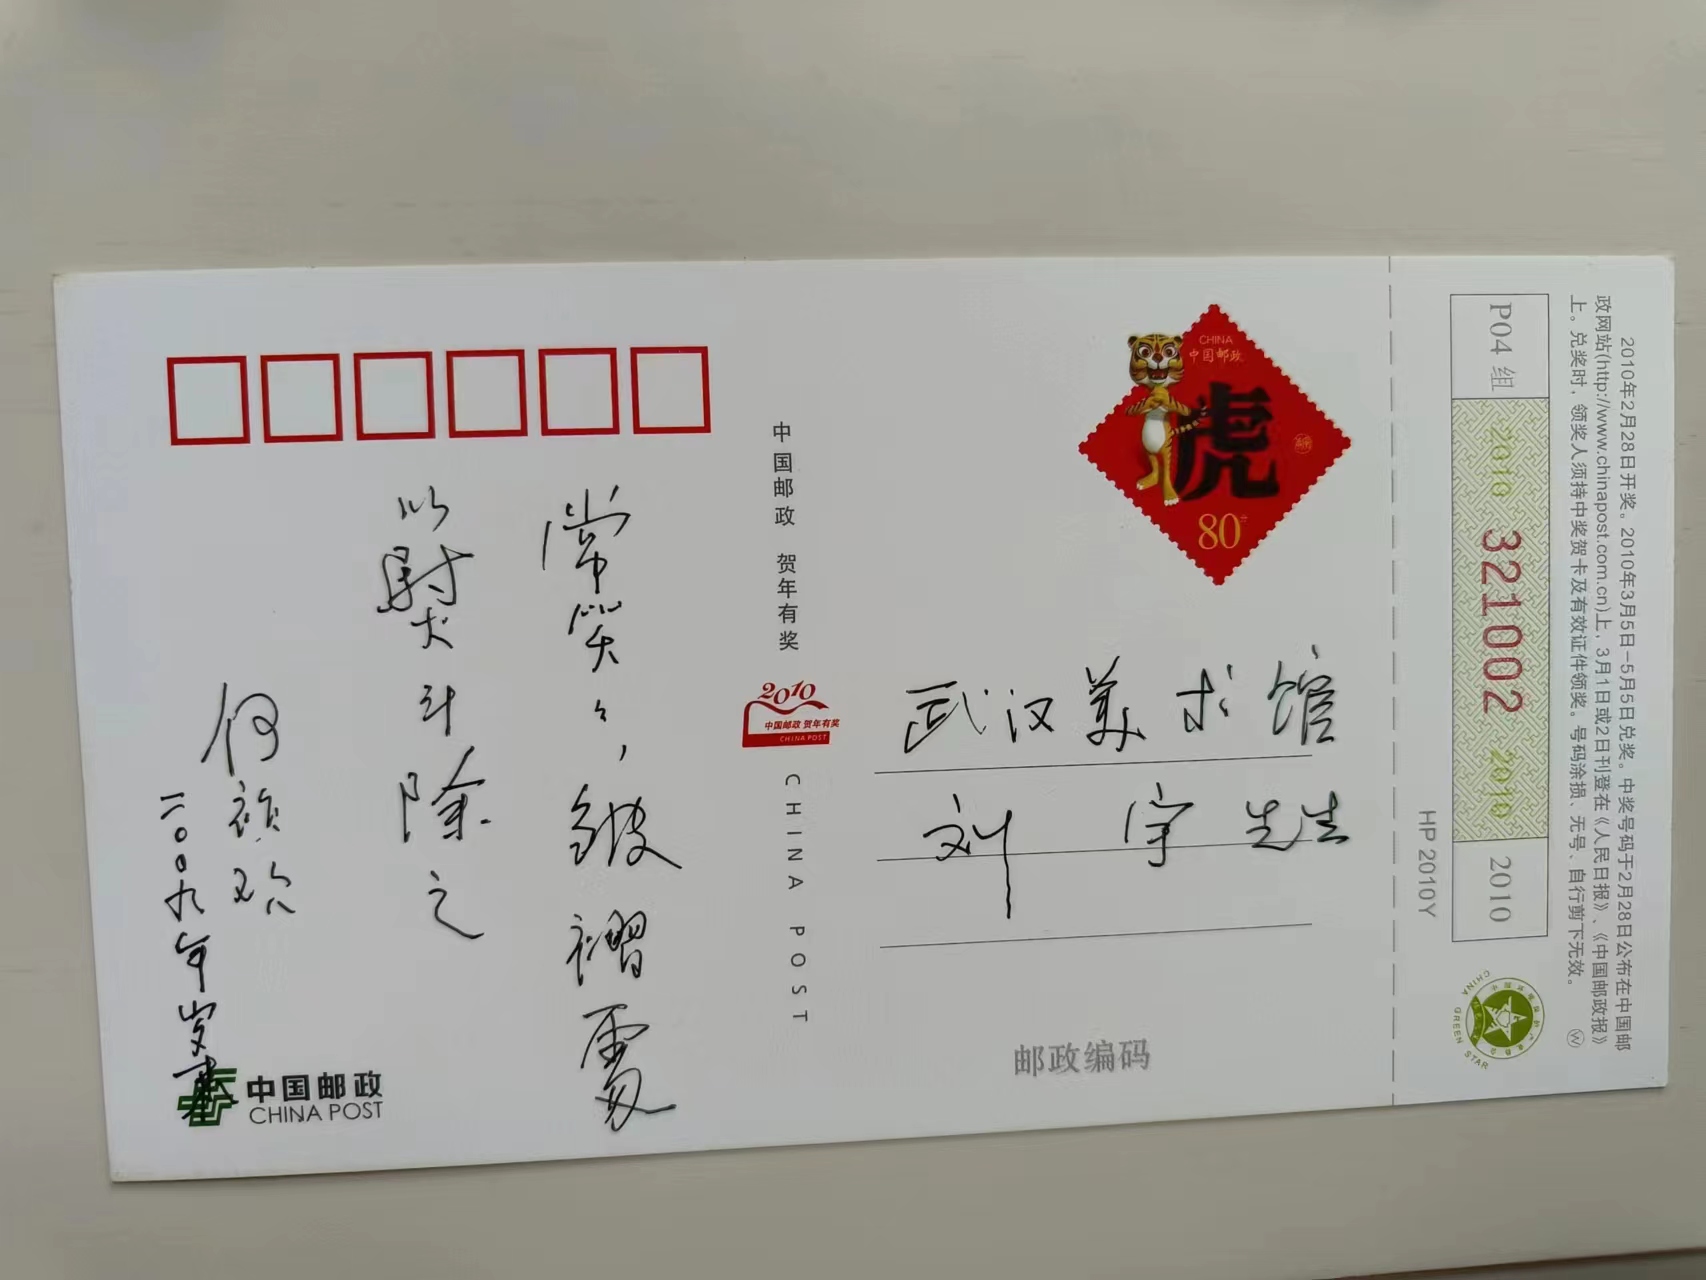 CHINA
中国邮政
虎
80分
武汉美术馆
刘宇先生
邮政编码
中国邮政 贺年有奖
2010
中国邮政 贺年有奖
CHINA POST
CHINA POST
常笑々，皱褶
以熨斗除之
何祚欢
二〇〇九年岁末
中国邮政
CHINA POST
2010年2月28日开奖。2010年3月5日-5月5日兑奖。中奖号码于2月28日公布在中国邮
政网站(http://www.chinapost.com.cn)上，3月1日或2日刊登在《人民日报》、《中国邮政报》
上。兑奖时，领奖人须持中奖贺卡及有效证件领奖。号码涂损、无号、自行剪下无效。
P04 组
2010 321002 2010
2010
HP 2010Y
CHINA GREEN STAR